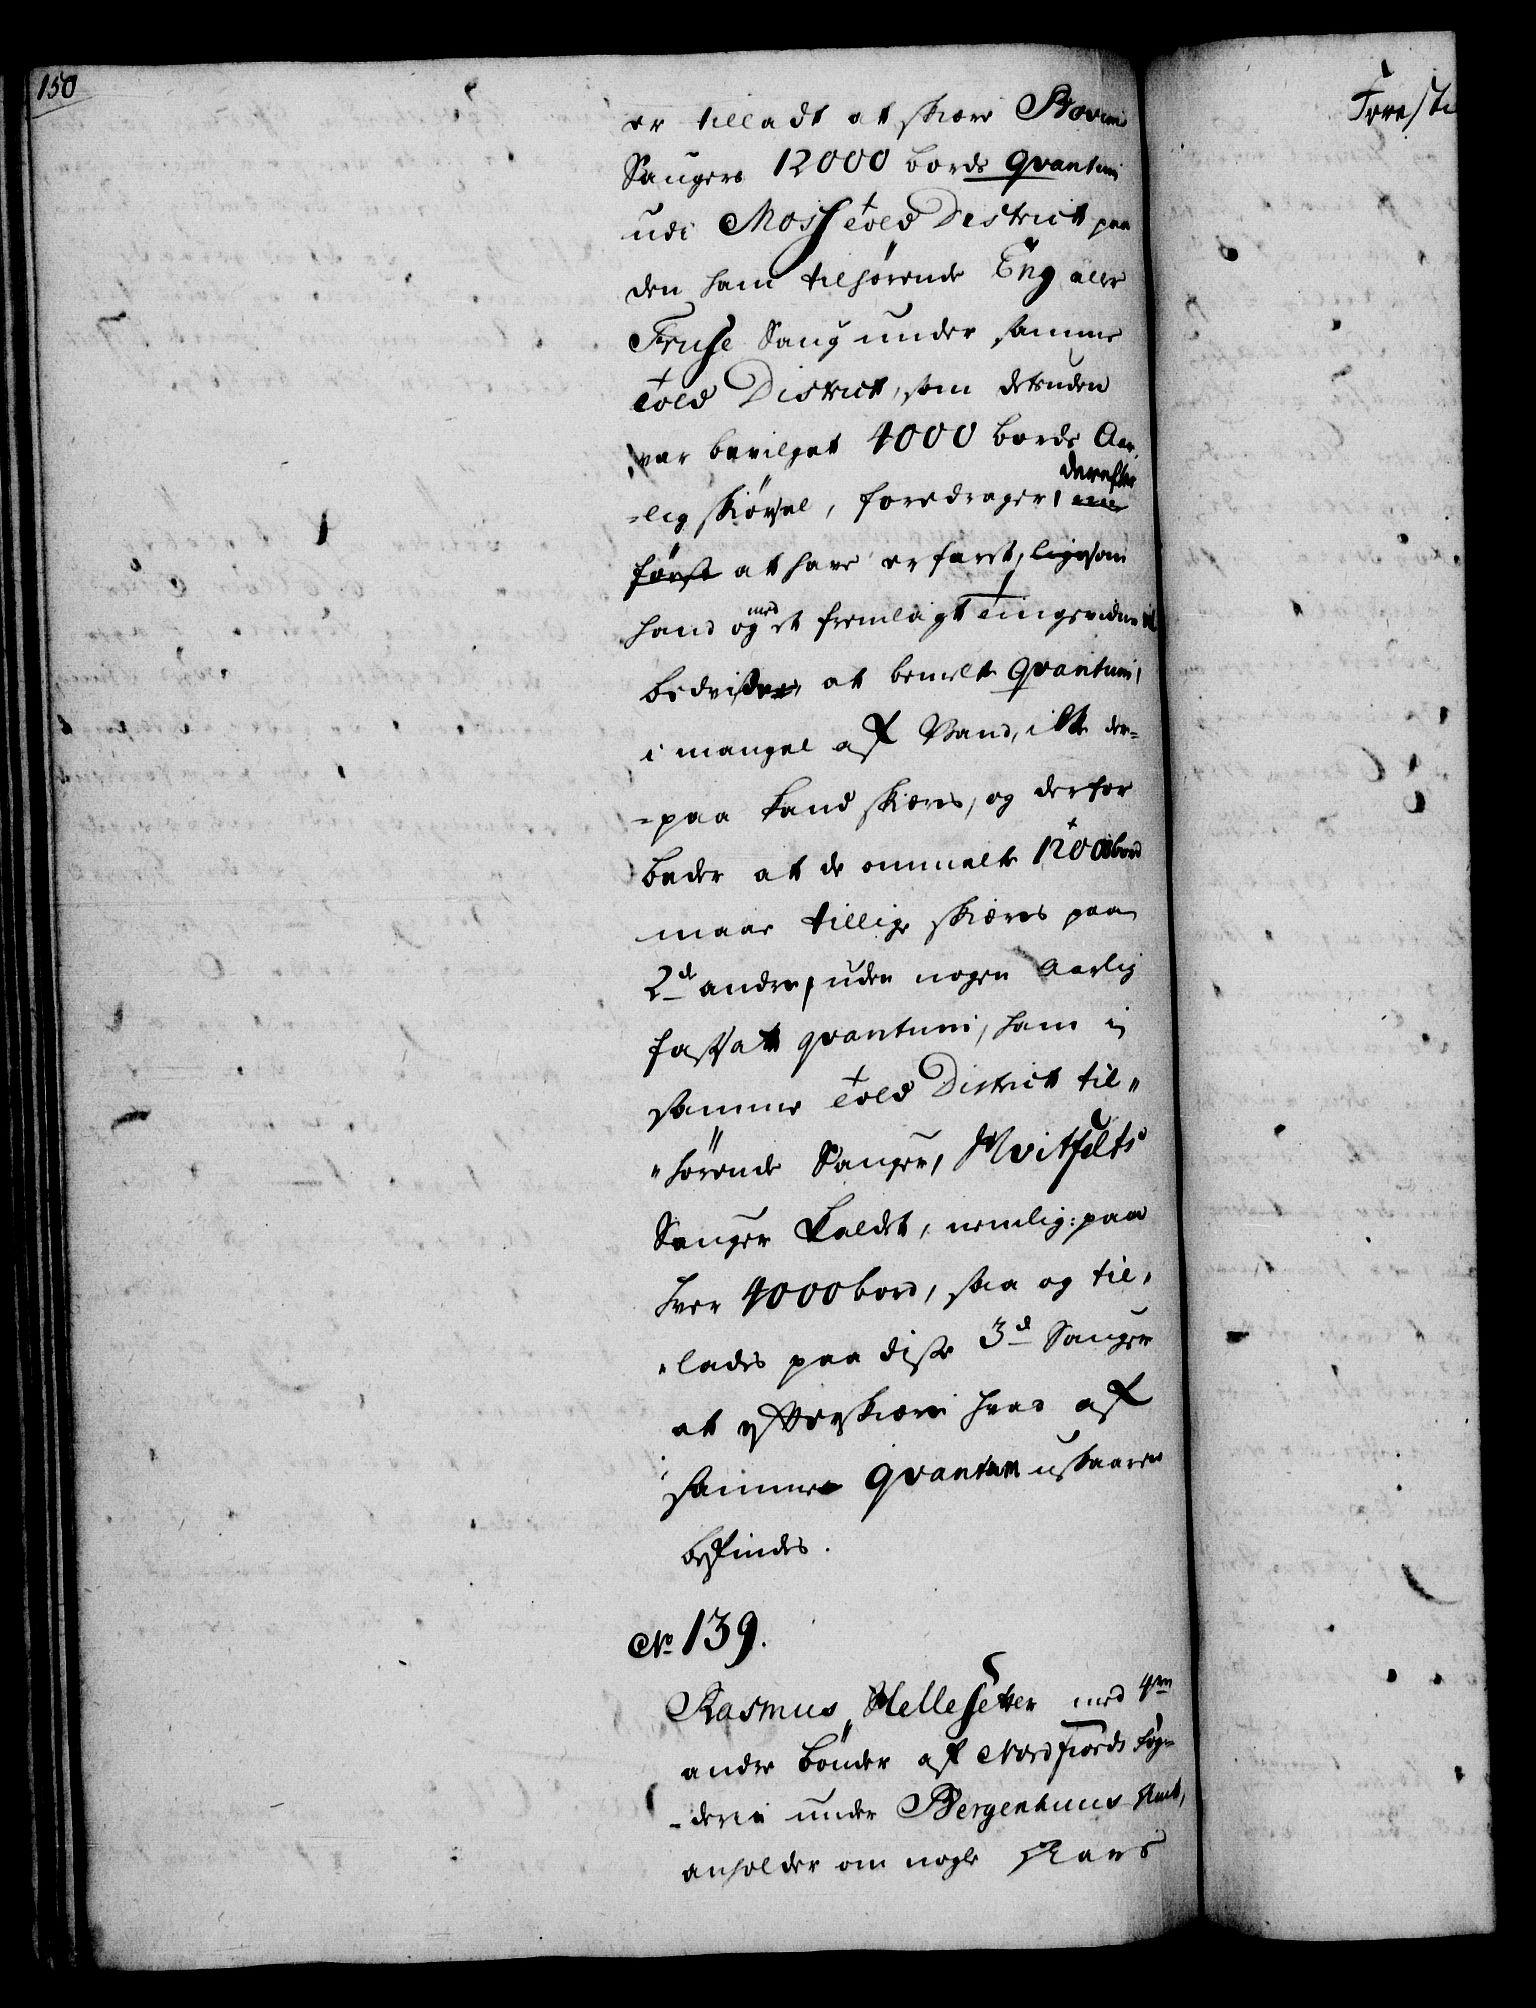 150
er tilladt at skiære Stovene
Saugers 12000 bords Qvantum
udi Moss Told District paa
den ham tilhørende Eng eller
Fruse Saug under samme
Told District, som desuden
var bevilget 4000 bords Aar-
=lig skiørsel, foredrager,
derefter
først at have erfaret, ligesom
hand og med et fremlagt Tingsvidne vil
bevise, at bemelte Qvantum,
i mangel af Vand, ikke der=
=paa kand skiæres, og derfor
beder at de ommelte 12000 bord
maae tillige skiæres paa
2de andre, uden nogen Aarlig
fastsatt qvantum, ham i
samme Told District til"
"hørende Sauger, Hvitfelts
Sauger kaldet, nemlig: paa
hver 4000 bord, saa og til"
"lades paa disse 3de Sauger
at efterskiære hvad af
samme Qvantum uskaaren
befindes.
No 139.
Rasmus Hellesetter med 4re
andre bønder af Nordfiords Fog=
=derie under Bergenhuus Amt,
anholder om nogle Aars
Foresti